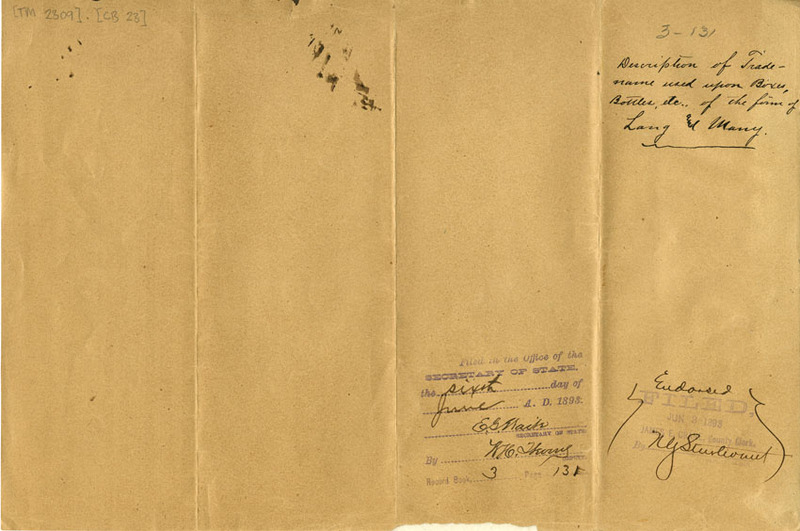 [TM 2309]. [CB 28]
3-131
Description of Trade-
name used upon Boxes,
Bottles, etc., of the form of
Lang & Many.
Filed in the Office of the
SECRETARY OF STATE.
the sixth day of
June A. D. 1893.
E G Waite
SECRETARY OF STATE
By W.H.
Record Book, 3 Page 131
Endorsed
FILED,
JUN 1893
County Clerk.
By